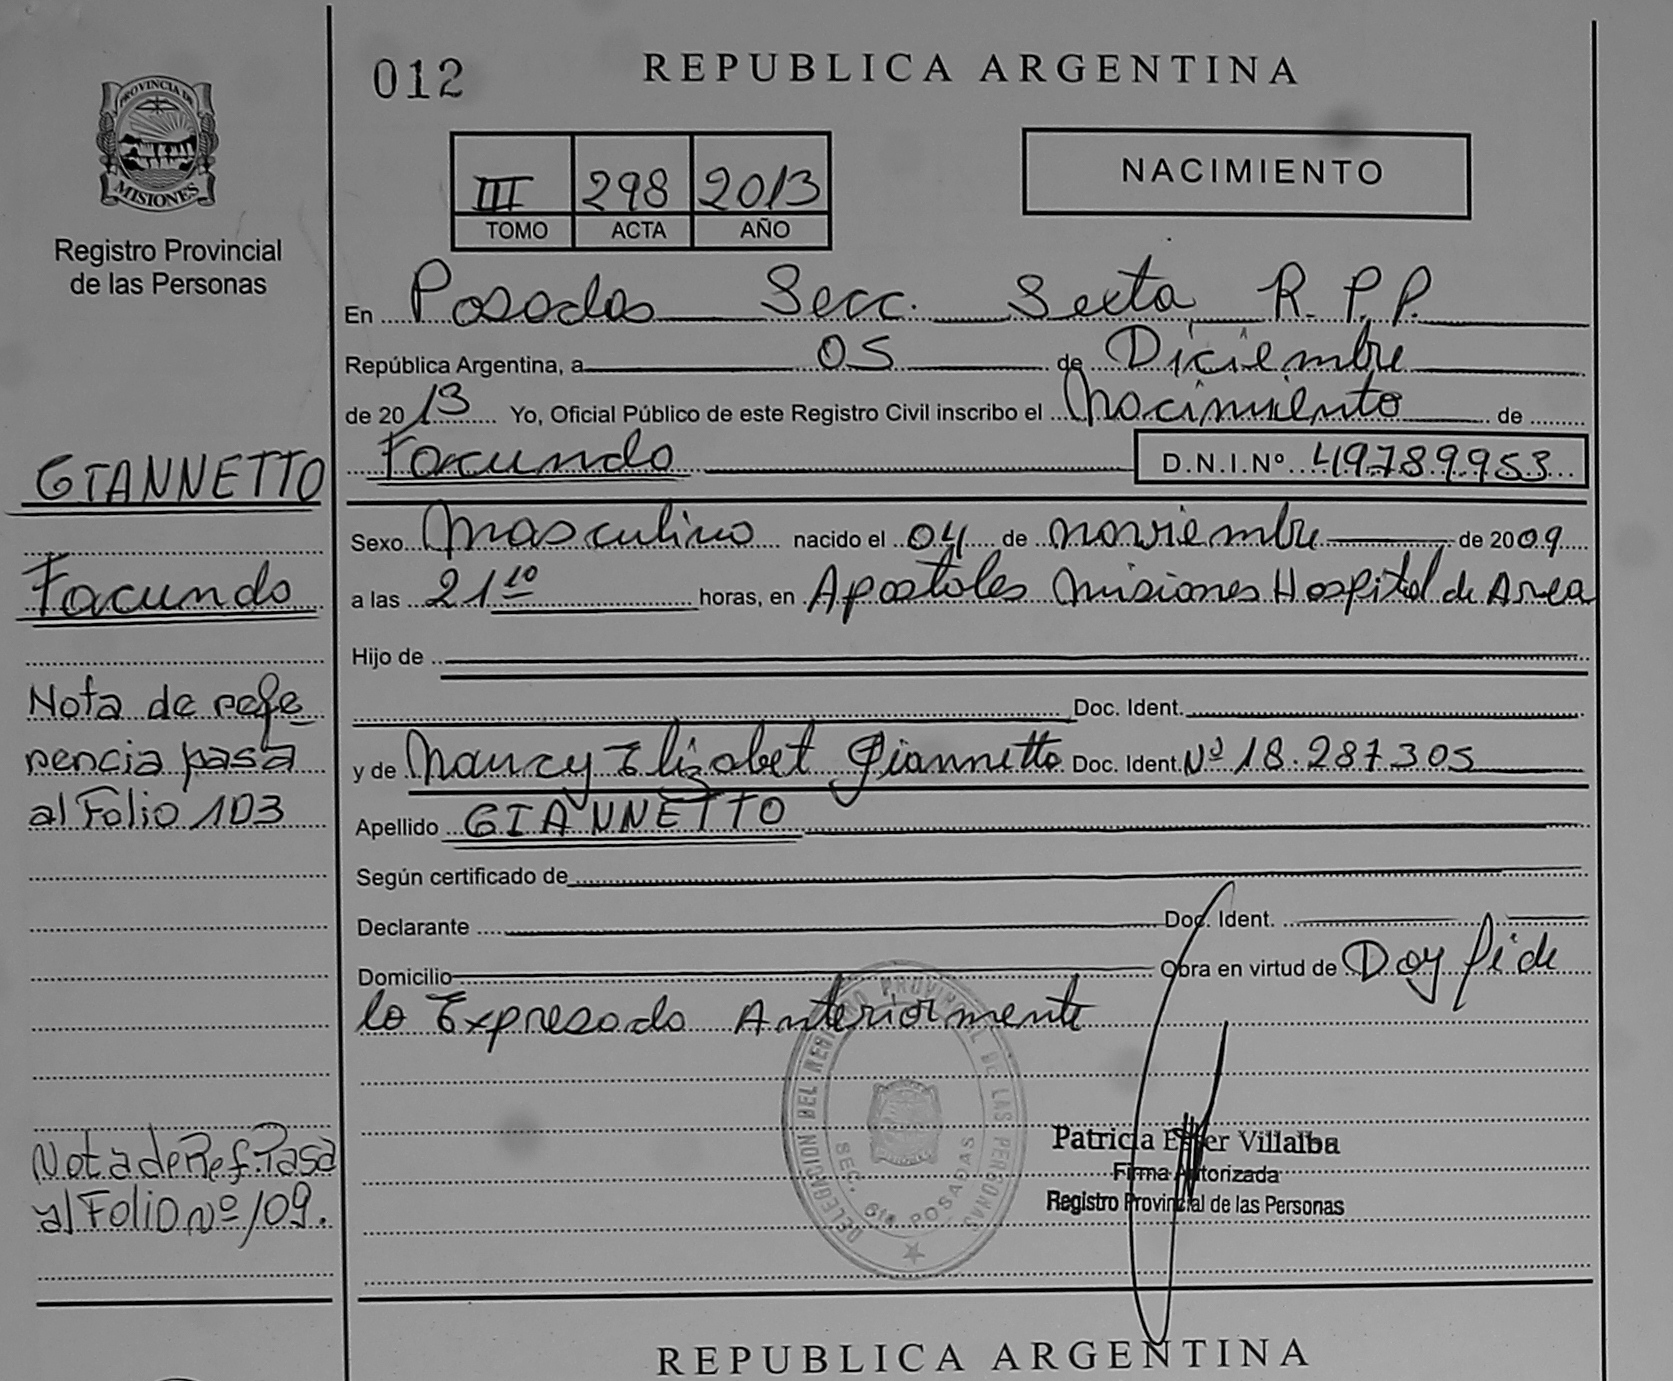 012
REPUBLICA ARGENTINA
PROVINCIA DE
MISIONES
Registro Provincial
de las Personas
III 298 2013
TOMO ACTA AÑO
NACIMIENTO
En Posadas Secc. Sexta R.P.P.
República Argentina, a 05 de Diciembre
de 2013 Yo, Oficial Público de este Registro Civil inscribo el Nacimiento de
Facundo D.N.I.Nº 49.789.953
GIANNETTO
Facundo
Nota de refe
rencia pasa
al Folio 103
Nota de Ref. Pasa
al Folio Nº 109.
Sexo Masculino nacido el 04 de Noviembre de 2009
a las 21 10 horas, en Apostoles Misiones Hospital de Area
Hijo de
Doc. Ident.
y de Nancy Elizabet Giannetto Doc. Ident. Nº 18.287.305
Apellido GIANNETTO
Según certificado de
Declarante Doc. Ident.
Domicilio Obra en virtud de Doy fé de
lo Expresado Anteriormente
DELEGACION DEL REGISTRO PROVINCIAL DE LAS PERSONAS
SEC. 6ta POSADAS
Patricia Ester Villalba
Firma Autorizada
Registro Provincial de las Personas
REPUBLICA ARGENTINA